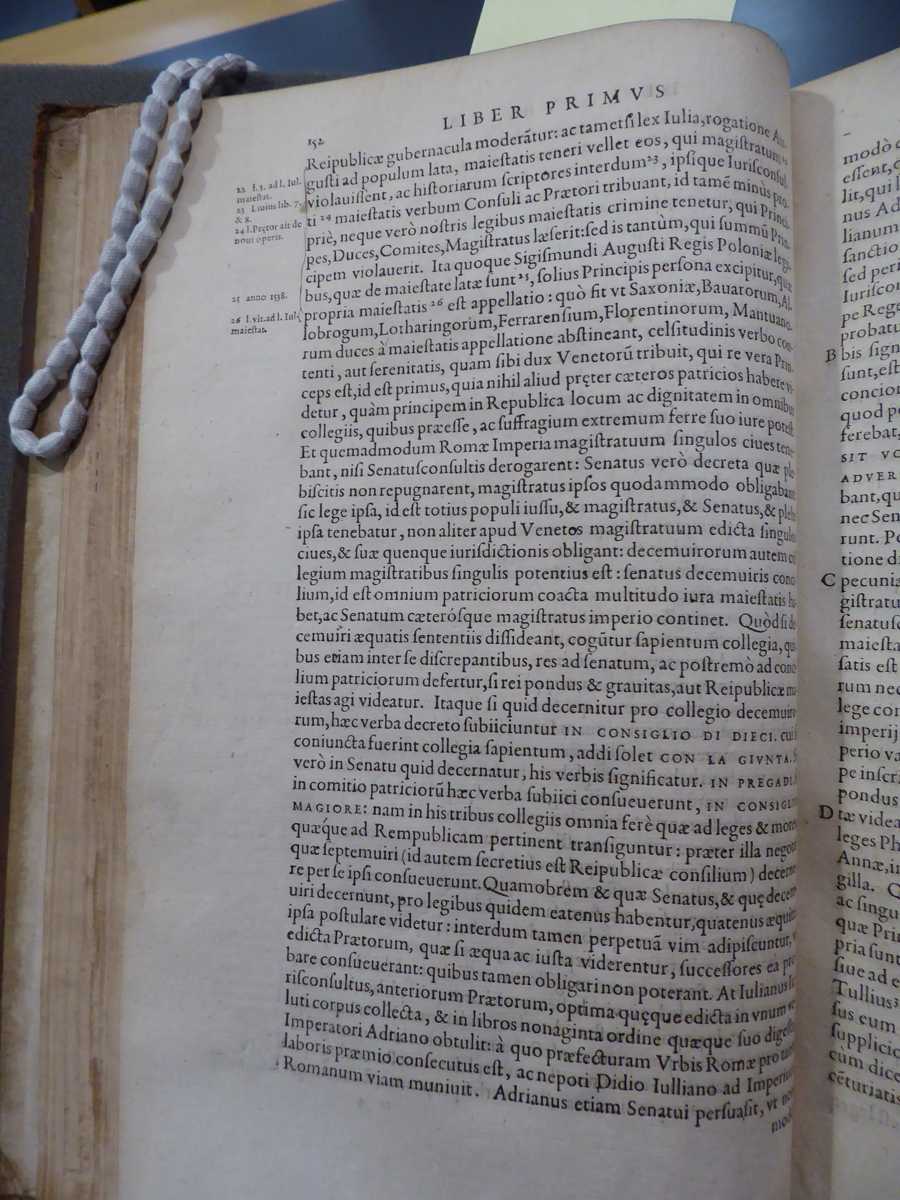 152 LIBER PRIMVS
Reipublicæ gubernacula moderãtur: ac tametſi lex Iulia, rogatione Au-
guſti ad populum lata, maieſtatis teneri vellet eos, qui magiſtratum 22
violauiſſent, ac hiſtoriarum ſcriptores interdum 23, ipſique Iuriſconſul-
ti 24 maieſtatis verbum Conſuli ac Prætori tribuant, id tamẽ minùs pro-
priè, neque verò noſtris legibus maieſtatis crimine tenetur, qui Princi-
pes, Duces, Comites, Magiſtratus læſerit: ſed is tantùm, qui ſummũ Prin-
cipem violauerit. Ita quoque Sigiſmundi Auguſti Regis Poloniæ legi-
bus, quæ de maieſtate latæ ſunt 25, ſolius Principis perſona excipitur, quæ
propria maieſtatis 26 eſt appellatio: quò fit vt Saxoniæ, Bauarorum, Al-
lobrogum, Lotharingorum, Ferrarenſium, Florentinorum, Mantuano-
rum duces à maieſtatis appellatione abſtineant, celſitudinis verbo con-
tenti, aut ſerenitatis, quam ſibi dux Venetorũ tribuit, qui re vera Prin-
ceps eſt, id eſt primus, quia nihil aliud pręter cæteros patricios habere vi-
detur, quàm principem in Republica locum ac dignitatem in omnibus
collegiis, quibus præeſſe, ac ſuffragium extremum ferre ſuo iure poteſt.
Et quemadmodum Romæ Imperia magiſtratuum ſingulos ciues tene-
bant, niſi Senatuſconſultis derogarent: Senatus verò decreta quæ ple-
biſcitis non repugnarent, magiſtratus ipſos quodammodo obligabant
ſic lege ipſa, id eſt totius populi iuſſu, & magiſtratus, & Senatus, & plebs
ipſa tenebatur, non aliter apud Venetos magiſtratuum edicta ſingulos
ciues, & ſuæ quenque iuriſdictionis obligant: decemuirorum autem col
legium magiſtratibus ſingulis potentius eſt: ſenatus decemuiris conci
lium, id eſt omnium patriciorum coacta multitudo iura maieſtatis ha
bet, ac Senatum cæteróſque magiſtratus imperio continet. Quòd ſi de
cemuiri æquatis ſententiis diſſideant, cogũtur ſapientum collegia, qui
bus etiam inter ſe diſcrepantibus, res ad ſenatum, ac poſtremò ad conci
lium patriciorum defertur, ſi rei pondus & grauitas, aut Reipublicæ ma
ieſtas agi videatur. Itaque ſi quid decernitur pro collegio decemuiro
rum, hæc verba decreto ſubiiciuntur IN CONSIGLIO DI DIECI. cui ſi
coniuncta fuerint collegia ſapientum, addi ſolet CON LA GIVNTA. S
verò in Senatu quid decernatur, his verbis ſignificatur. IN PREGADI.
in comitio patriciorũ hæc verba ſubiici conſueuerunt, IN CONSIGLIO
MAGIORE: nam in his tribus collegiis omnia ferè quæ ad leges & mores
quæque ad Rempublicam pertinent tranſiguntur: præter illa negotia
quæ ſeptemuiri (id autem ſecretius eſt Reipublicæ conſilium) decerne
re per ſe ipſi conſueuerunt. Quamobrem & quæ Senatus, & quę decem
uiri decernunt, pro legibus quidem eatenus habentur, quatenus æquitas
ipſa poſtulare videtur: interdum tamen perpetuã vim adipiſcuntur,
edicta Prætorum, quæ ſi æqua ac iuſta viderentur, ſucceſſores ea pro
bare conſueuerant: quibus tamen obligari non poterant. At Iulianus Iu
riſconſultus, anteriorum Prætorum, optima quęque edicta in vnum ve
luti corpus collecta, & in libros nonaginta ordine quæque ſuo digeſta
Imperatori Adriano obtulit: à quo præfecturam Vrbis Romæ pro tanti
laboris præmio conſecutus eſt, ac nepoti Didio Iulliano ad Imperium
Romanum viam muniuit. Adrianus etiam Senatui perſuaſit, vt non
modò
22 l. 3. ad l. Iul.
maieſtat.
23 Liuius lib. 7.
& 8.
24 l. Prętor ait de
noui operis.
25 anno 1538.
26 l. vlt. ad l. Iul.
maieſtat.
modò
eſſent,
lit, qui
nus Ad
lianum
ſanctio
ſed peri
Iuriſcon
pe Rege
probatu
B bis ſign
ſunt, eſt
concion
quod p
ferebat,
SIT VO
ADVER
bant, qu
nec Sen
runt. P
tione di
C pecunia
giſtratu
ſenatuſc
maieſta
ſatis eſt
rum nec
lege con
imperij
perio va
pe inſcri
pondus
D tæ videa
leges Ph
Annæ, in
gilla. Q
ac ſingu
quæ Prin
pria ſunt
ſiue ad e
Tullius
ſus eum
ſupplicio
cùm dice
cẽturiatis